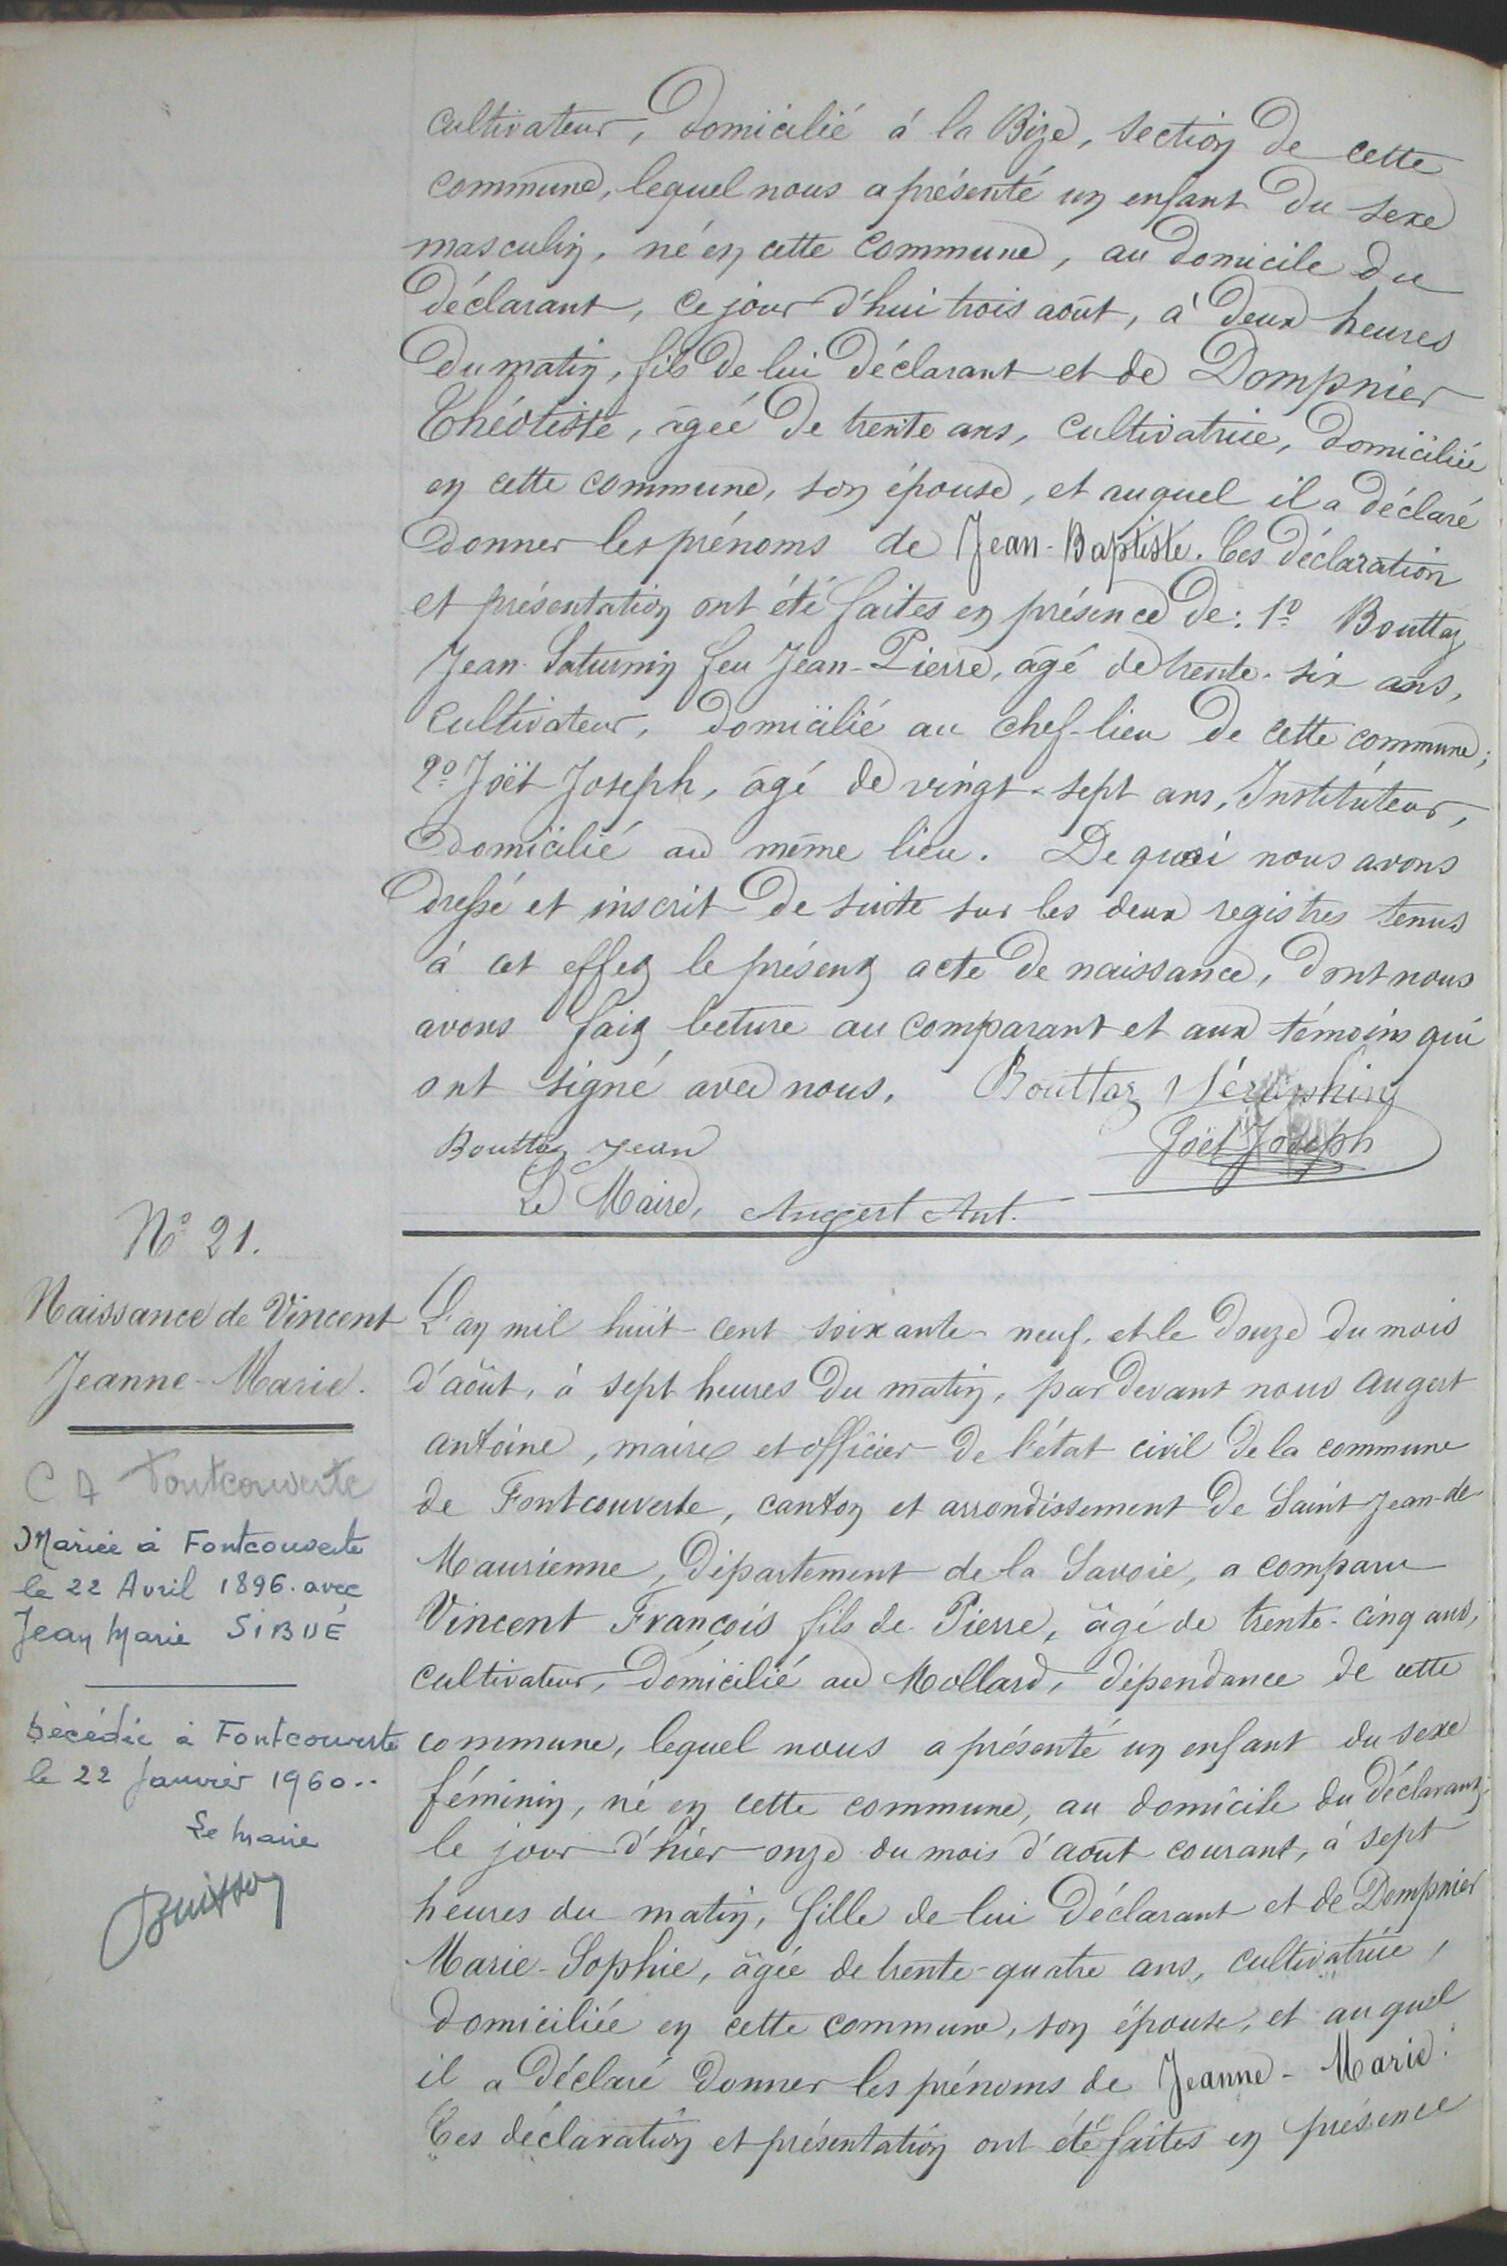 cultivateur, domicilié à la Bize, section de cette
commune, lequel nous a présenté un enfant du sexe
masculin, né en cette commune, au domicile du
déclarant, ce jour d'hui trois août, à deux heures
du matin, fils de lui déclarant et de Dompnier
Théotiste, âgée de trente ans, cultivatrice, domiciliée
en cette commune, son épouse, et auquel il a déclaré
donner les prénoms de Jean-Baptiste. Ces déclaration
et présentation ont été faites en présence de: 1º Bouttaz
Jean Saturnin feu Jean-Pierre, âgé de trente-six ans,
cultivateur, domicilié au chef-lieu de cette commune;
2º Joët Joseph, âgé de vingt-sept ans, Instituteur,
domicilié au même lieu. De quoi nous avons
dressé et inscrit de suite sur les deux registres tenus
à cet effet le présent acte de naissance, dont nous
avons fait lecture au comparant et aux témoins qui
ont signé avec nous. Bouttaz Séraphin
Bouttaz Jean Joët Joseph
Le Maire, Augert Ant.
Nº 21.
Naissance de Vincent
Jeanne-Marie.
C A Fontcouverte
Mariée à Fontcouverte
le 22 Avril 1896. avec
Jean Marie SIBUÉ
Décédée à Fontcouverte
le 22 Janvier 1960..
Le Maire
Buisson
L'an mil huit cent soixante-neuf, et le douze du mois
d'août, à sept heures du matin, par devant nous Augert
Antoine, maire et officier de l'état civil de la commune
de Fontcouverte, canton et arrondissement de Saint Jean-de
Maurienne, département de la Savoie, a comparu
Vincent François fils de Pierre, âgé de trente-cinq ans,
cultivateur, domicilié au Mollard, dépendance de cette
commune, lequel nous a présenté un enfant du sexe
féminin, né en cette commune, au domicile du déclarant,
le jour d'hier onze du mois d'août courant, à sept
heures du matin, fille de lui déclarant et de Dompnier
Marie-Sophie, âgée de trente-quatre ans, cultivatrice,
domiciliée en cette commune, son épouse, et auquel
il a déclaré donner les prénoms de Jeanne-Marie.
Ces déclaration et présentation ont été faites en présence